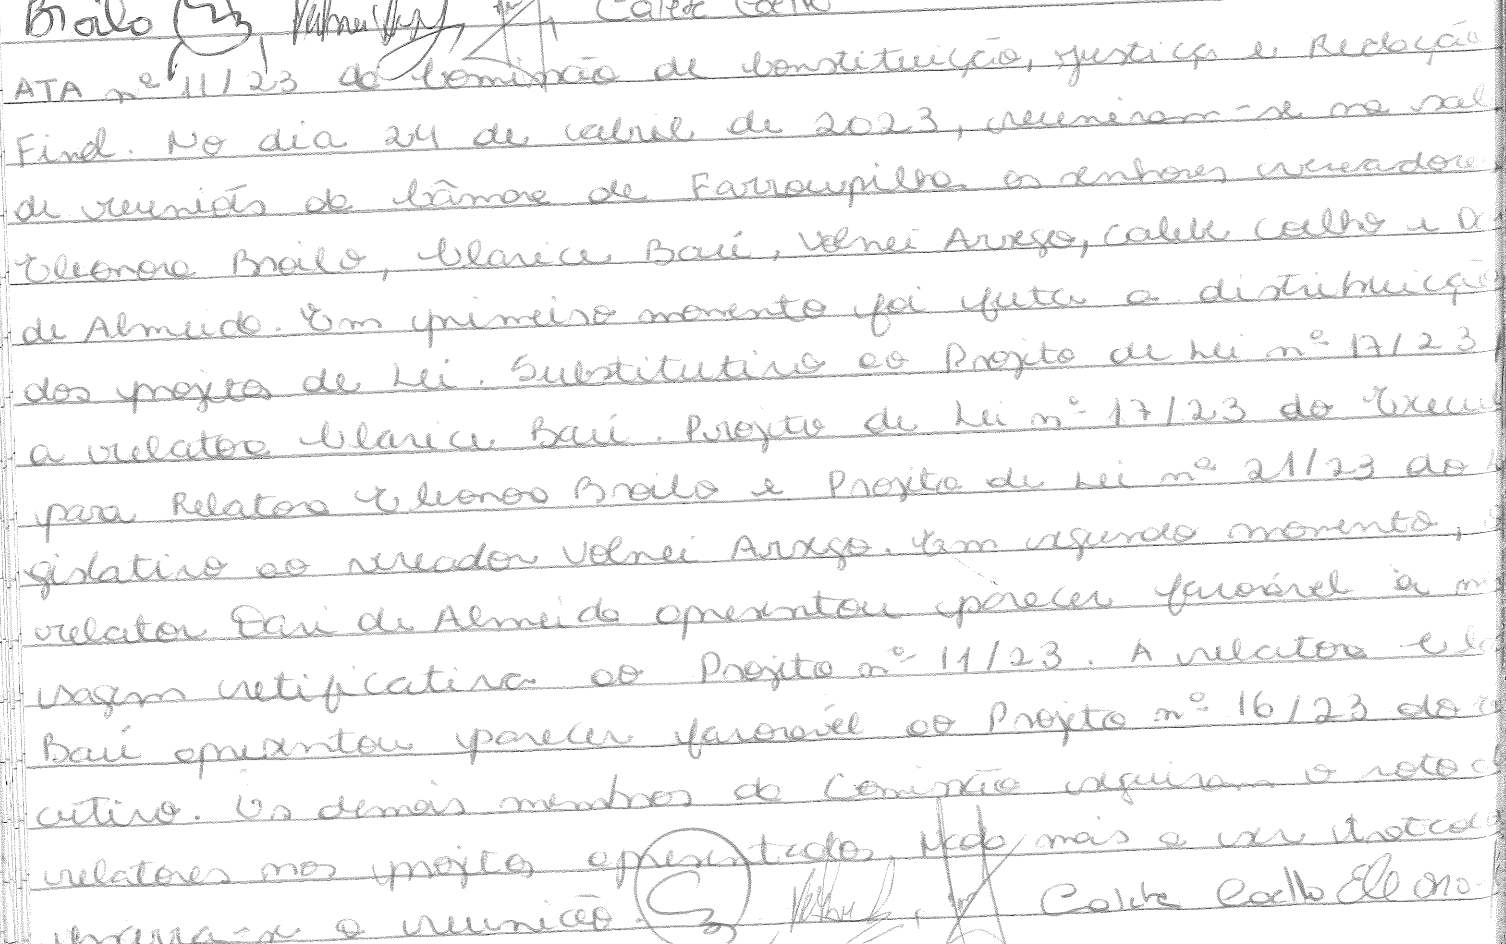 Broilo Calebe Coelho
ATA nº 11/23 da Comissão de Constituição, Justiça e Redação
Final. No dia 24 de abril de 2023, reuniram-se na sal
de reunião da Câmara de Farroupilha os senhores vereadore
Eleonora Broilo, Clarice Baú, Volnei Arsego, Calebe Coelho e D
de Almeida. Em primeiro momento foi feita a distribuição
dos projetos de Lei. Substitutivo ao Projeto de Lei nº 17/23
a relatora Clarice Baú. Projeto de Lei nº 17/23 do Execu
para Relatora Eleonora Broilo e Projeto de Lei nº 21/23 do
gislativo ao vereador Volnei Arsego. Em segundo momento,
relator Dari de Almeida apresentou parecer favorável à m
sagem retificativa ao Projeto nº 11/23. A relatora Cla
Baú apresentou parecer favorável ao Projeto nº 16/23 do
cutivo. Os demais membros da Comissão seguiram o voto d
relatores nos projetos apresentados. Nada mais a ser tratado
a reunião. Calebe Coelho Eleono